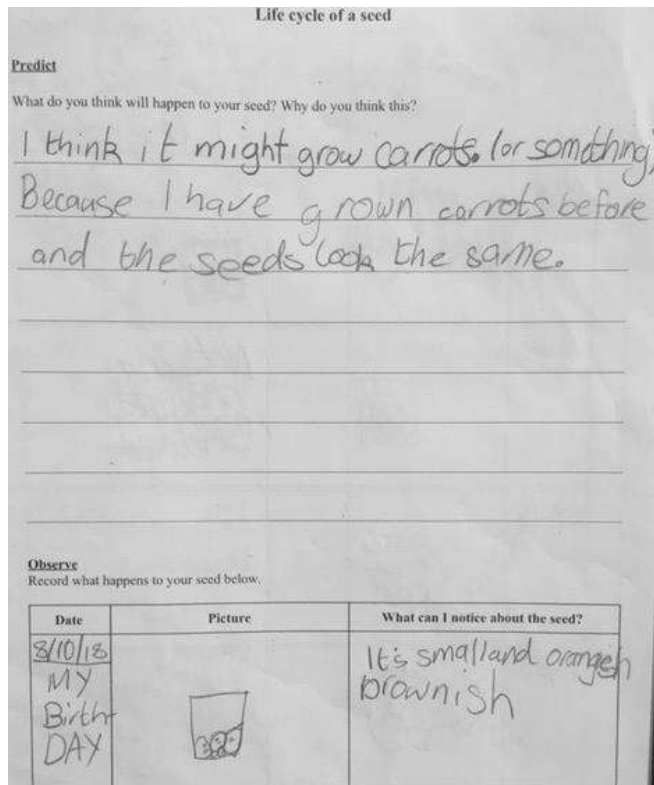 Life cycle of a seed
Predict
What do you think will happen to your seed? Why do you think this?
I think it might grow carrots. (or something)
Because I have grown carrots before
and the seeds look the same.
Observe
Record what happens to your seed below.
Date Picture What can I notice about the seed?
8/10/18 It's small and orangeh
MY brownish
Birth
DAY